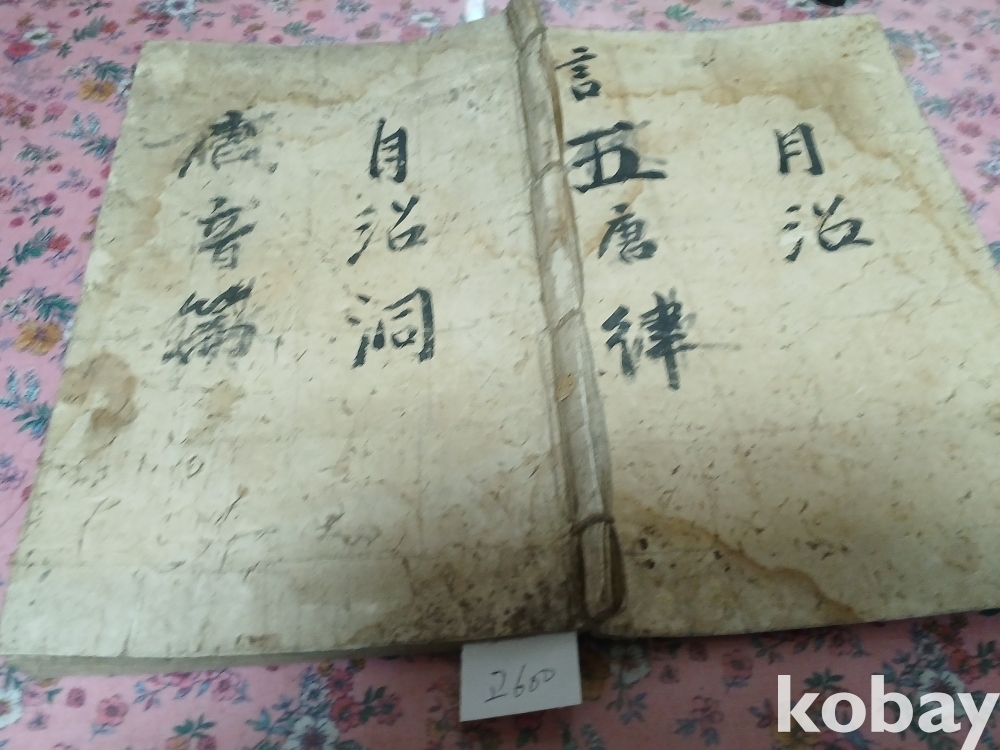 月沿
言五唐律
月沿洞
唐音篇
2600
kobay